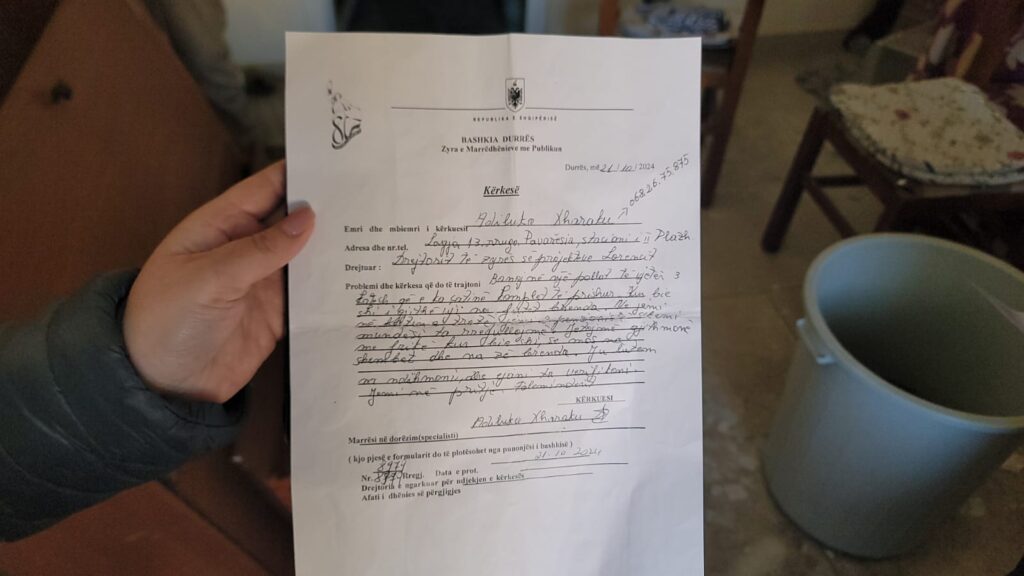 REPUBLIKA E SHQIPËRISË
BASHKIA DURRËS
Zyra e Marrëdhënieve me Publikun
Durrës, më 21/10/2024
068.26.75.875
Kërkesë
Emri dhe mbiemri i kërkuesit Xharaku
Adresa dhe nr.tel. Lagja 13. rruga, Pavarësia, stacioni i II Plazh.
Drejtuar : Drejtorit të zyrës së projekteve
Problemi dhe kërkesa që do të trajtoni Banoj në një pallat të vjetër 3
katësh që e ka të prishur. Kur bie
shi i gjithë uji na brenda. Ne jemi
në
mundësi ta rregullojmë. Jetojmë gjithmonë
me frikë kur bie shi, se mos na
shembet dhe na zë brenda. Ju lutem
na ndihmoni, dhe ejani ta verifikoni
Jemi në pritje. Faleminderit
KËRKUESI
Xharaku
Marrësi në dorëzim(specialisti)
( kjo pjesë e formularit do të plotësohet nga punonjësi i bashkisë )
8974 21.10.2024
Nr. Rregj. Data e prot.
Drejtoria e ngarkuar për ndjekjen e kërkesës
Afati i dhënies së përgjigjes